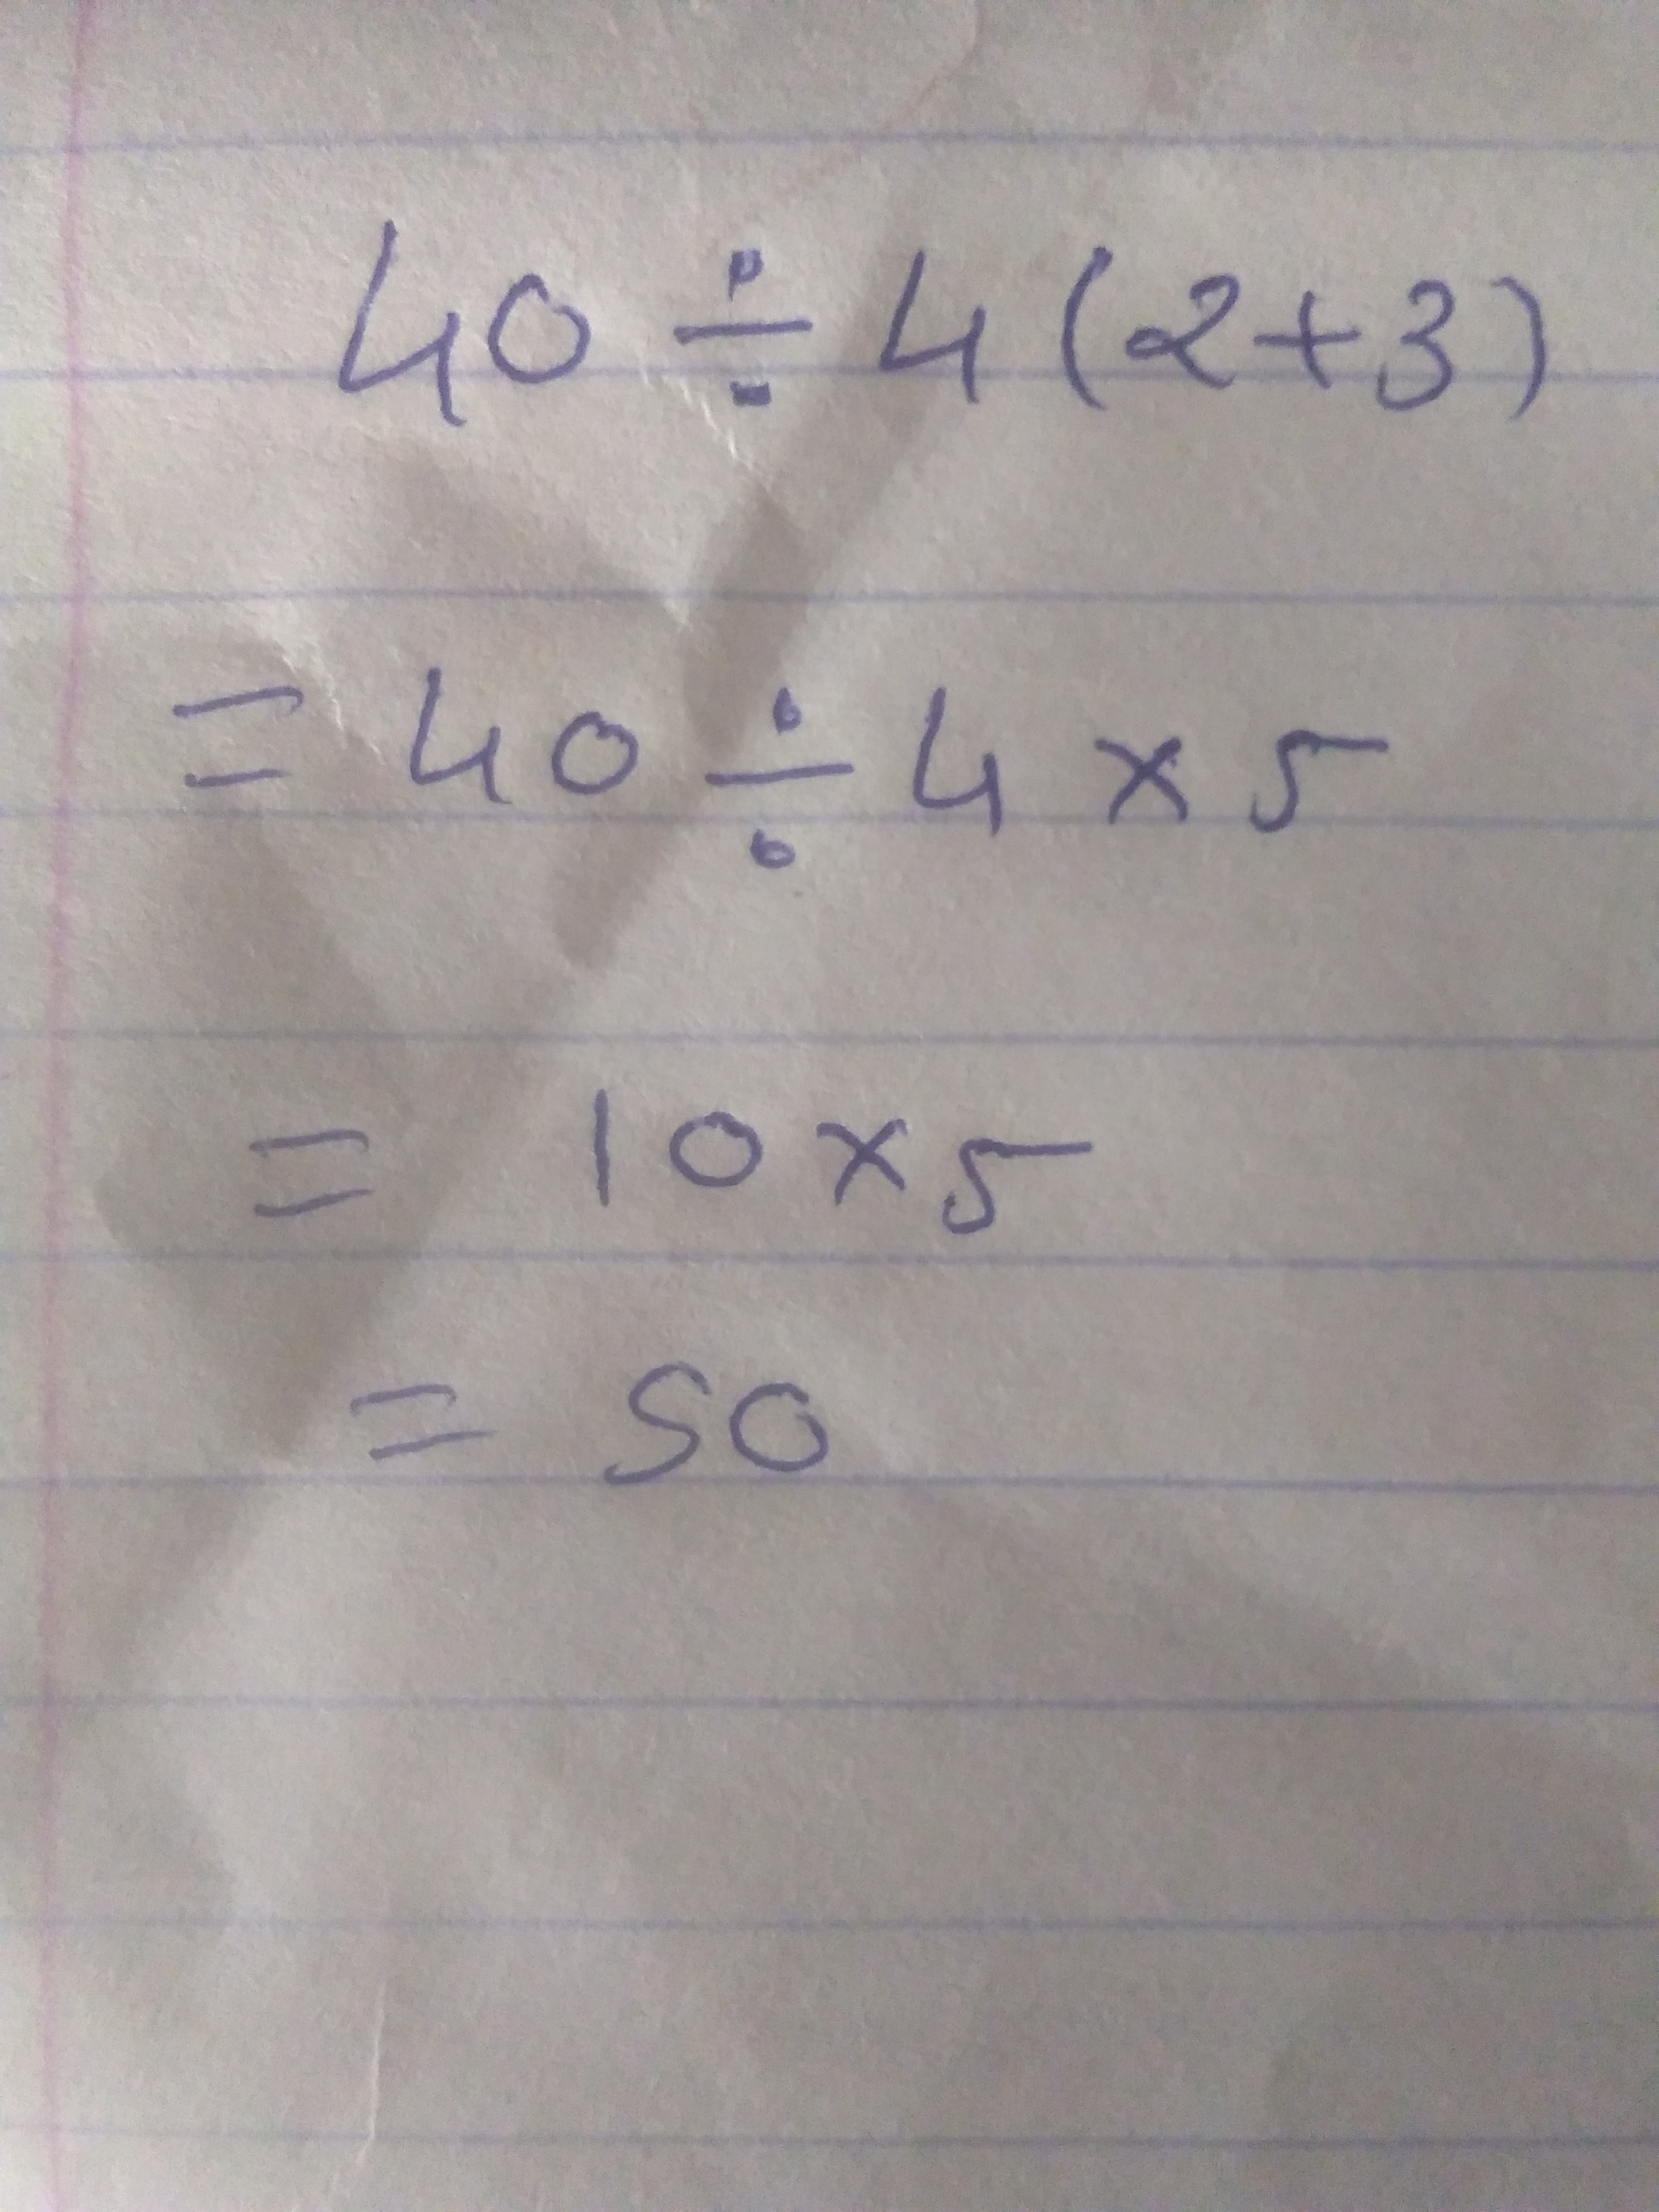 40 ÷ 4 (2+3)
= 40 ÷ 4 × 5
= 10 × 5
= 50